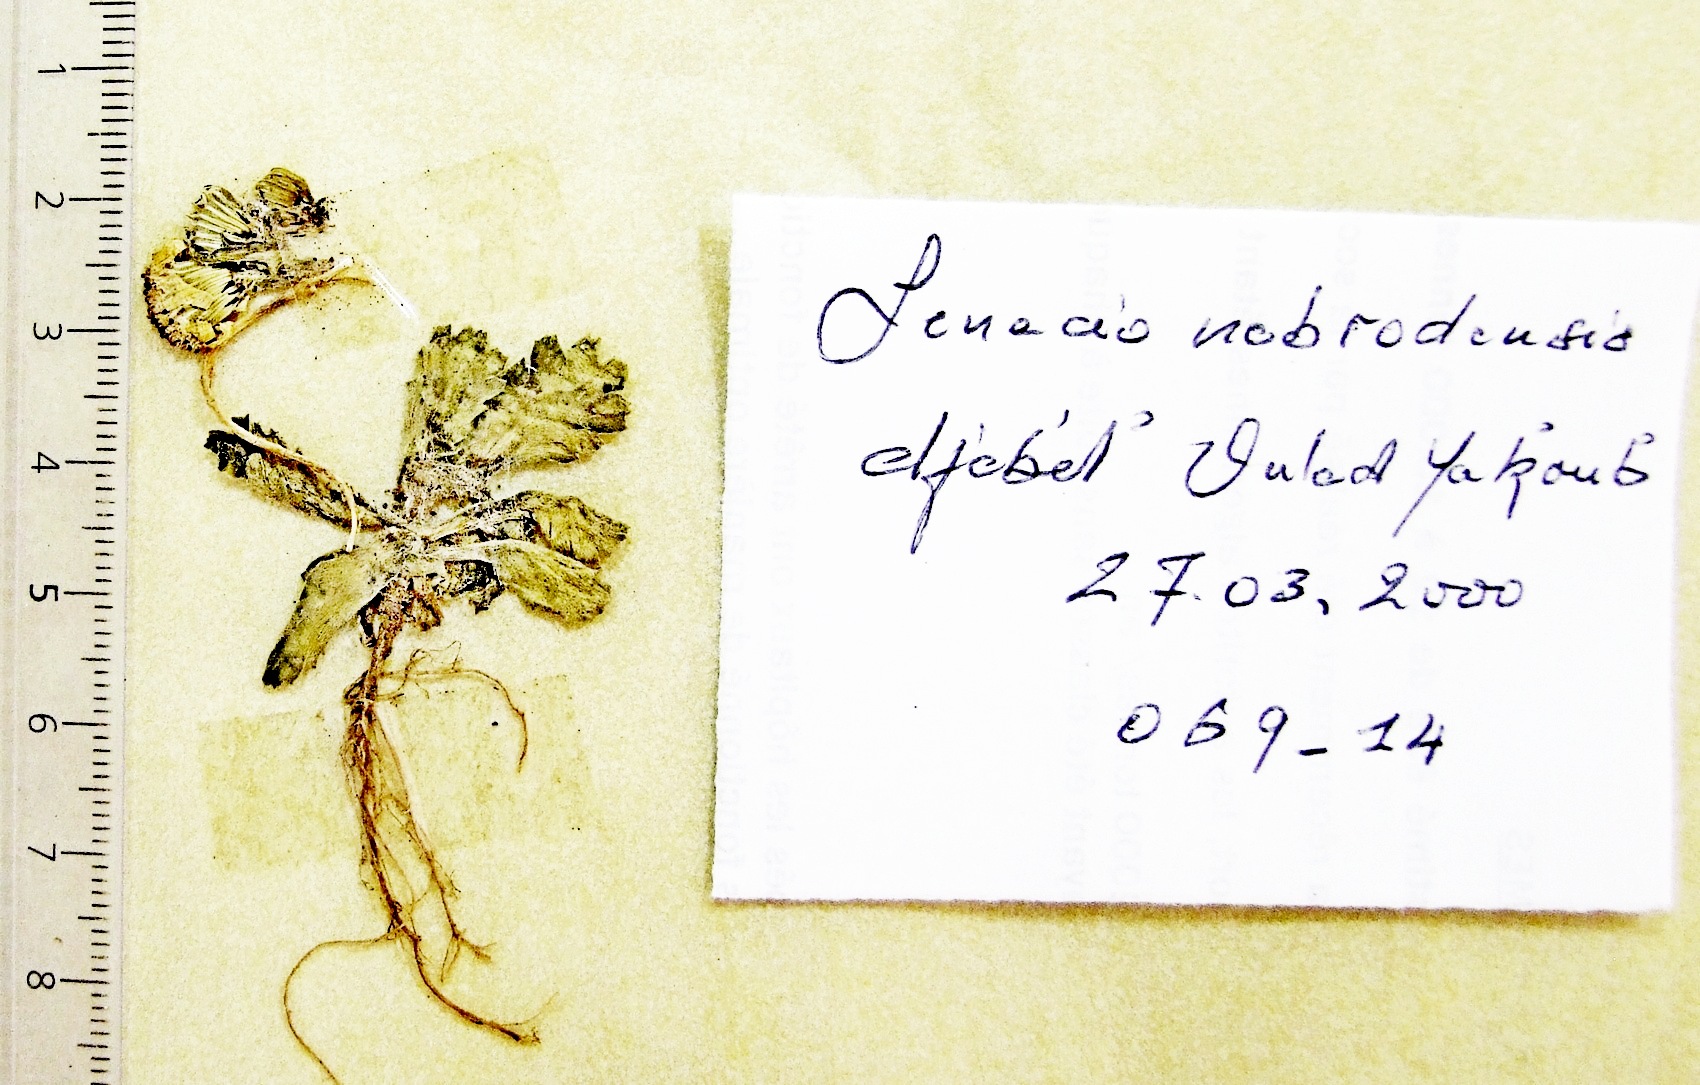 1
2
3
4
5
6
7
8
Senecio nebrodensis
djebel Oulad Yakoub
27.03.2000
069-14